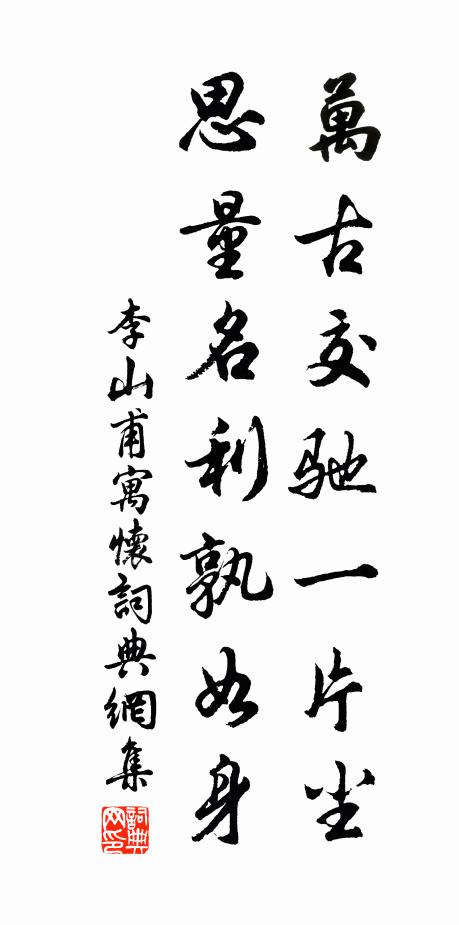 萬古交馳一片尘
思量名利孰如身
李山甫寓懷詞典網集
詞典
网印